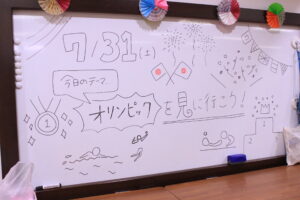 7/31(土)
今日のテーマ
オリンピックを見に行こう!
1
1